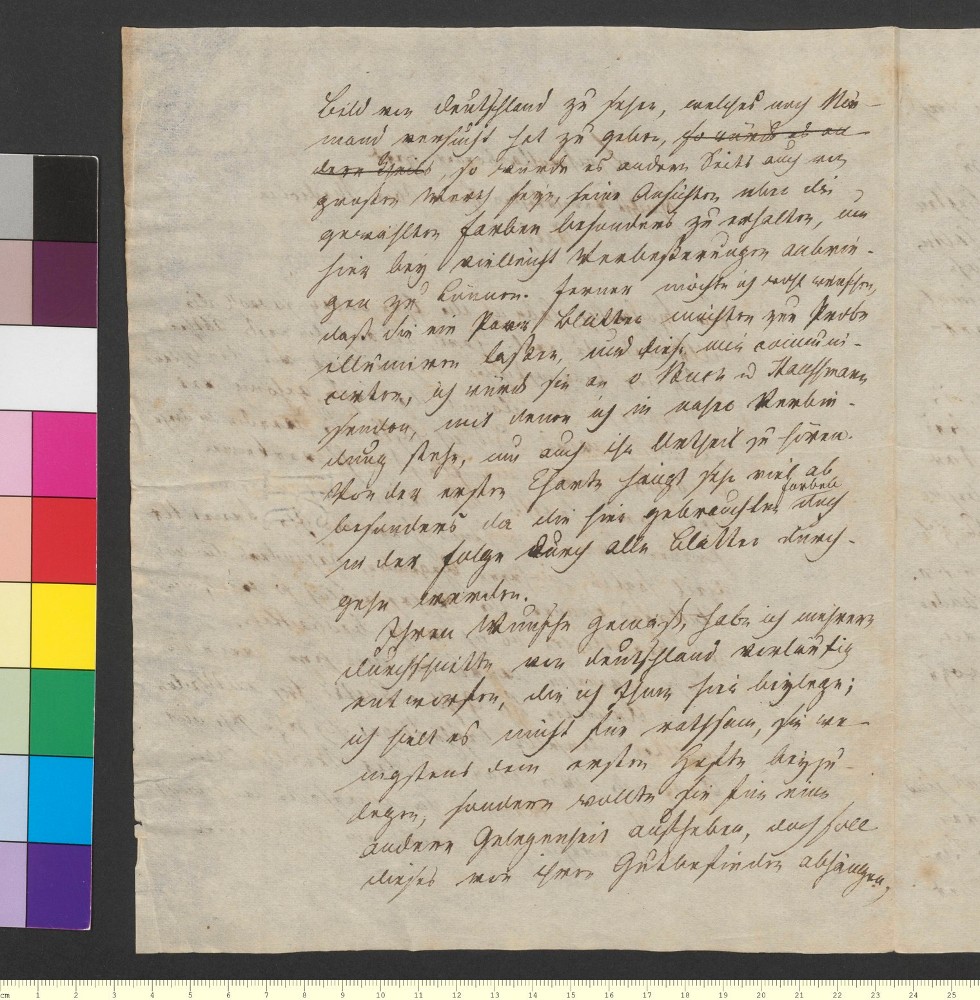 bild von Deutschland zu sehen, welches noch Nie-
mand versucht hat zu geben, so würde es an-
dern Theils, so würde es andern Seits auch von
großen Werth seyn, seine Ansichten über die
gewählten Farben besonders zu erhalten, um
hier bey vielleicht Verbeßerungen anbrin-
gen zu können. Ferner möchte ich wohl wünschen,
daß Sie ein Paar Blätter möchten zur Probe
illuminiren laßen, und diese mir communi-
cirten, ich würde sie an v Buch u Haussmann
senden, mit denen ich in naher Verbin-
dung stehe, um auch ihr Urtheil zu hören.
Von der ersten Charte hängt sehr viel ab
besonders da die hier gebrauchten Farben doch
in der Folge durch alle Blätter durch-
gehn werden.
Ihren Wunsche gemäß, habe ich mehrere
Durchschnitte von Deutschland vorläufig
entworfen, die ich Ihnen hier beylege;
ich hielt es nicht für rathsam, sie we-
nigstens dem ersten Hefte beyzu-
legen, sondern wollte sie für eine
andere Gelegenheit aufheben, doch soll
dieses von ihren Gutbefinden abhängen,